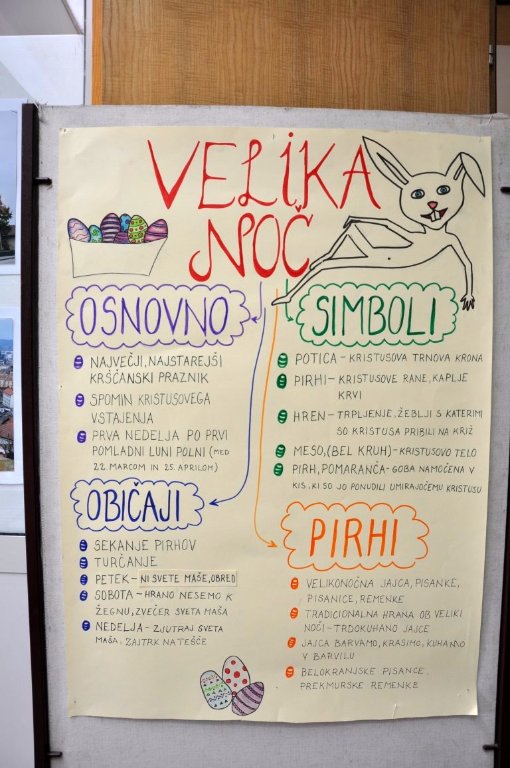 VELIKA
NOČ
OSNOVNO
NAJVEČJI, NAJSTAREJŠI
KRŠČANSKI PRAZNIK
SPOMIN KRISTUSOVEGA
VSTAJENJA
PRVA NEDELJA PO PRVI
POMLADNI LUNI POLNI (MED
22. MARCOM IN 25. APRILOM)
OBIČAJI
SEKANJE PIRHOV
TURČANJE
PETEK - NI SVETE MAŠE, OBRED
SOBOTA - HRANO NESEMO K
ŽEGNU, ZVEČER SVETA MAŠA
NEDELJA - ZJUTRAJ SVETA
MAŠA, ZAJTRK NA TEŠČE
SIMBOLI
POTICA - KRISTUSOVA TRNOVA KRONA
PIRHI - KRISTUSOVE RANE, KAPLJE
KRVI
HREN - TRPLJENJE, ŽEBLJI S KATERIMI
SO KRISTUSA PRIBILI NA KRIŽ
MESO, (BEL KRUH) - KRISTUSOVO TELO
PIRH, POMARANČA - GOBA NAMOČENA V
KIS, KI SO JO PONUDILI UMIRAJOČEMU KRISTUSU
PIRHI
VELIKONOČNA JAJCA, PISANKE,
PISANICE, REMENKE
TRADICIONALNA HRANA OB VELIKI
NOČI - TRDOKUHANO JAJCE
JAJCA BARVAMO, KRASIMO, KUHAMO
V BARVILU
BELOKRANJSKE PISANCE,
PREKMURSKE REMENKE